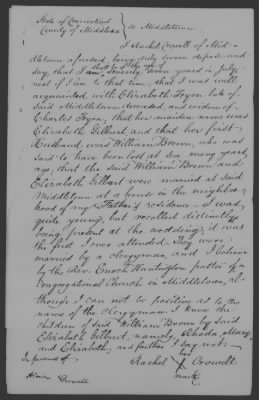 State of Connecticut
County of Middlesex } ss. Middletown.
I Rachel Crowell of Mid-
dletown aforesaid, being duly sworn depose and
say, that I shall be fifty seven years in July
next if I live to that time, that I was well
acquainted with Elizabeth Tryon late of
said Middletown deceased, and widow of
Charles Tryon, that her maiden name was
Elizabeth Gilbert, and that her first
Husband was William Brown, who was
said to have been lost at sea many years
ago, that the said William Brown and
Elizabeth Gilbert were married at said
Middletown at a house in the neighbor-
hood of my Father's residence. I was
quite young, but recollect distinctly
being present at the wedding, it was
the first I ever attended. They were
married by a clergyman, and I believe
by the Rev. Enoch Huntington pastor of a
Congregational Church in Middletown, al-
though I can not be positive as to the
name of the Clergyman. I knew the
children of said William Brown by said
Elizabeth Gilbert, namely Rhoda, Mary
and Elizabeth, and further I say not.
In presence of her
Rachel X Crowell
Crowell mark